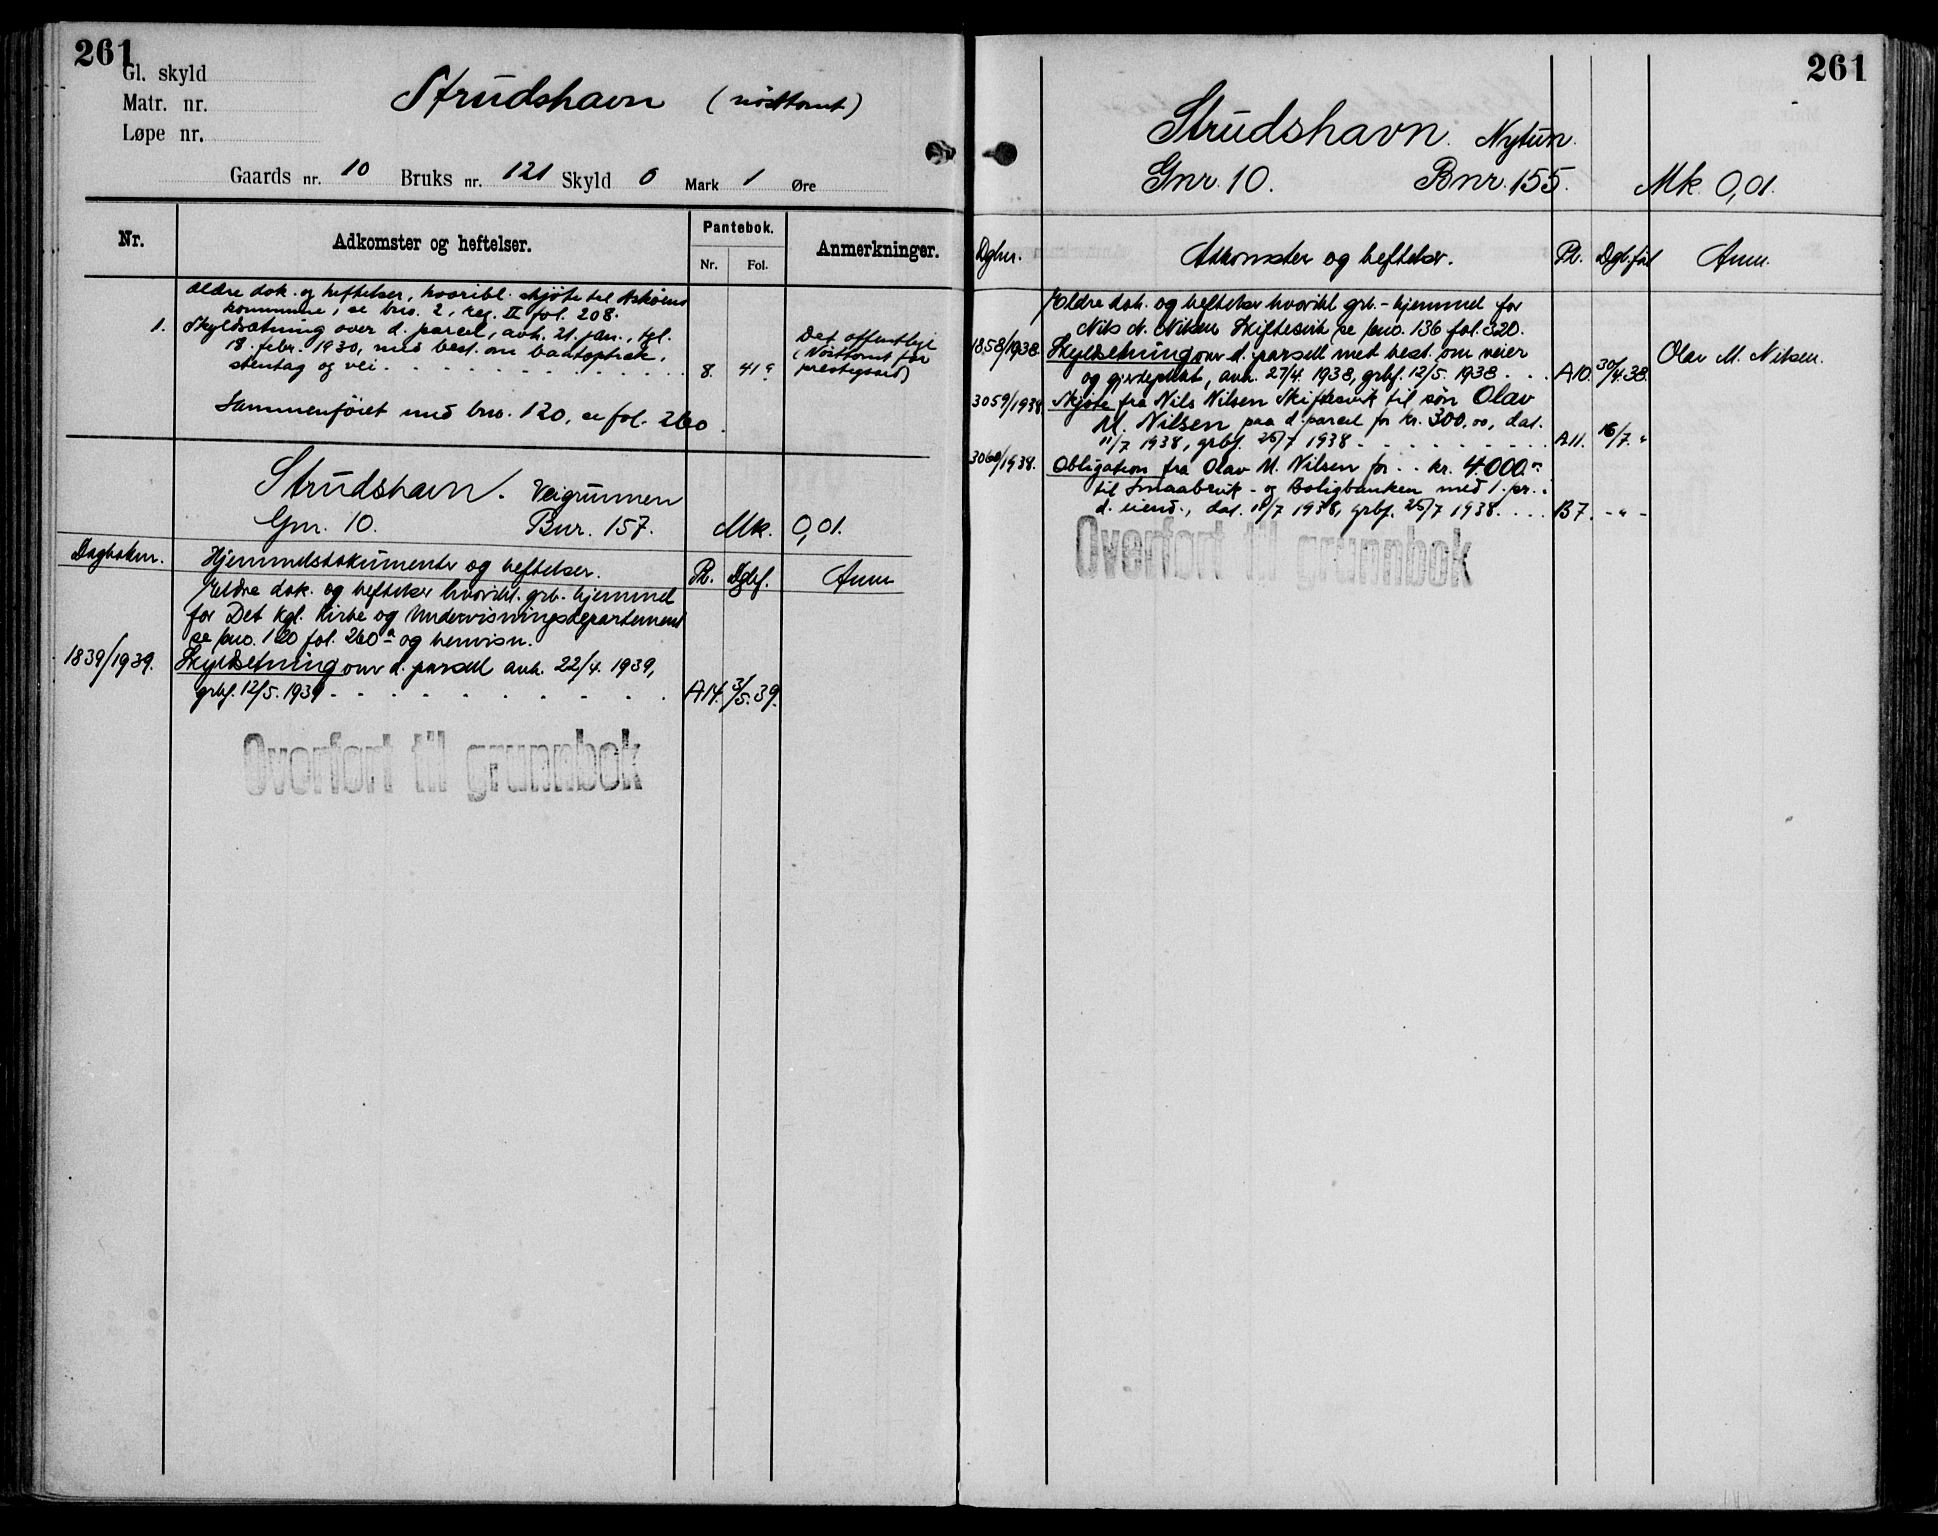 261
Gl. skyld
Matr. nr.
Løpe nr.
Strudshavn (nösttomt)
Gaards nr. 10 Bruks nr. 121 Skyld 0 Mark 1 Øre
Nr. Adkomster og heftelser. Pantebok. Anmerkninger.
Nr. Fol.
Ældre dok. og heftelser, hvoribl. skjöte til Askøens
kommune, se bno. 2, reg. II fol. 208.
1. Skyldsætning over d. parcel, avh. 21. jan., tgl.
18. febr. 1930, med best. om baatoptræk,
stentag og vei. 8. 41a
Det offentlige
(Nösttomt for
prestegaard)
Sammenföiet med bno. 120, se fol. 260.
Strudshavn. Veigrunnen
Gnr. 10. Bnr. 157. Mk. 0,01.
Dagboknr. Hjemmelsdokumenter og heftelser. Pb. Dgbf. Anm
Eldre dok. og heftelser hvoribl. grb. hjemmel
for Det kgl. Kirke og Undervisningsdepartement
se bno. 120 fol. 260a og henvisn.
1839/1939. Skyldsetning over d. parsell avh. 22/4. 1939,
grbf. 12/5. 1939 A14. 3/5.39.
Overført til grunnbok
261
Strudshavn. Nytun.
Gnr. 10. Bnr. 155. Mk. 0,01.
Dgbnr. Adkomster og heftelser. Pb. Dgb.før Anm.
Eldre dok. og heftelser hvoribl grb.-hjemmel for
Nils N. Nilsen Skiftesvik se bno. 136 fol. 320.
1858/1938. Skyldsetning over d. parsell med best. om veier
og gjerdeplikt, avh. 27/4. 1938, grbf. 12/5. 1938 A10. 30/4.38. Olav M. Nilsen.
3059/1938. Skjöte fra Nils Nilsen Skiftesvik til søn Olav
M. Nilsen paa d. parcel for kr. 300,00, dat.
11/7 1938, grbf. 25/7 1938 A11. 16/7. "
3060/1938. Obligation fra Olav M. Nilsen for kr. 4000.-
til Smaabruk- og Boligbanken med 1. pr. i
d. eiend., dat. 11/7 1938, grbf. 25/7 1938 B7. - " -
Overført til grunnbok